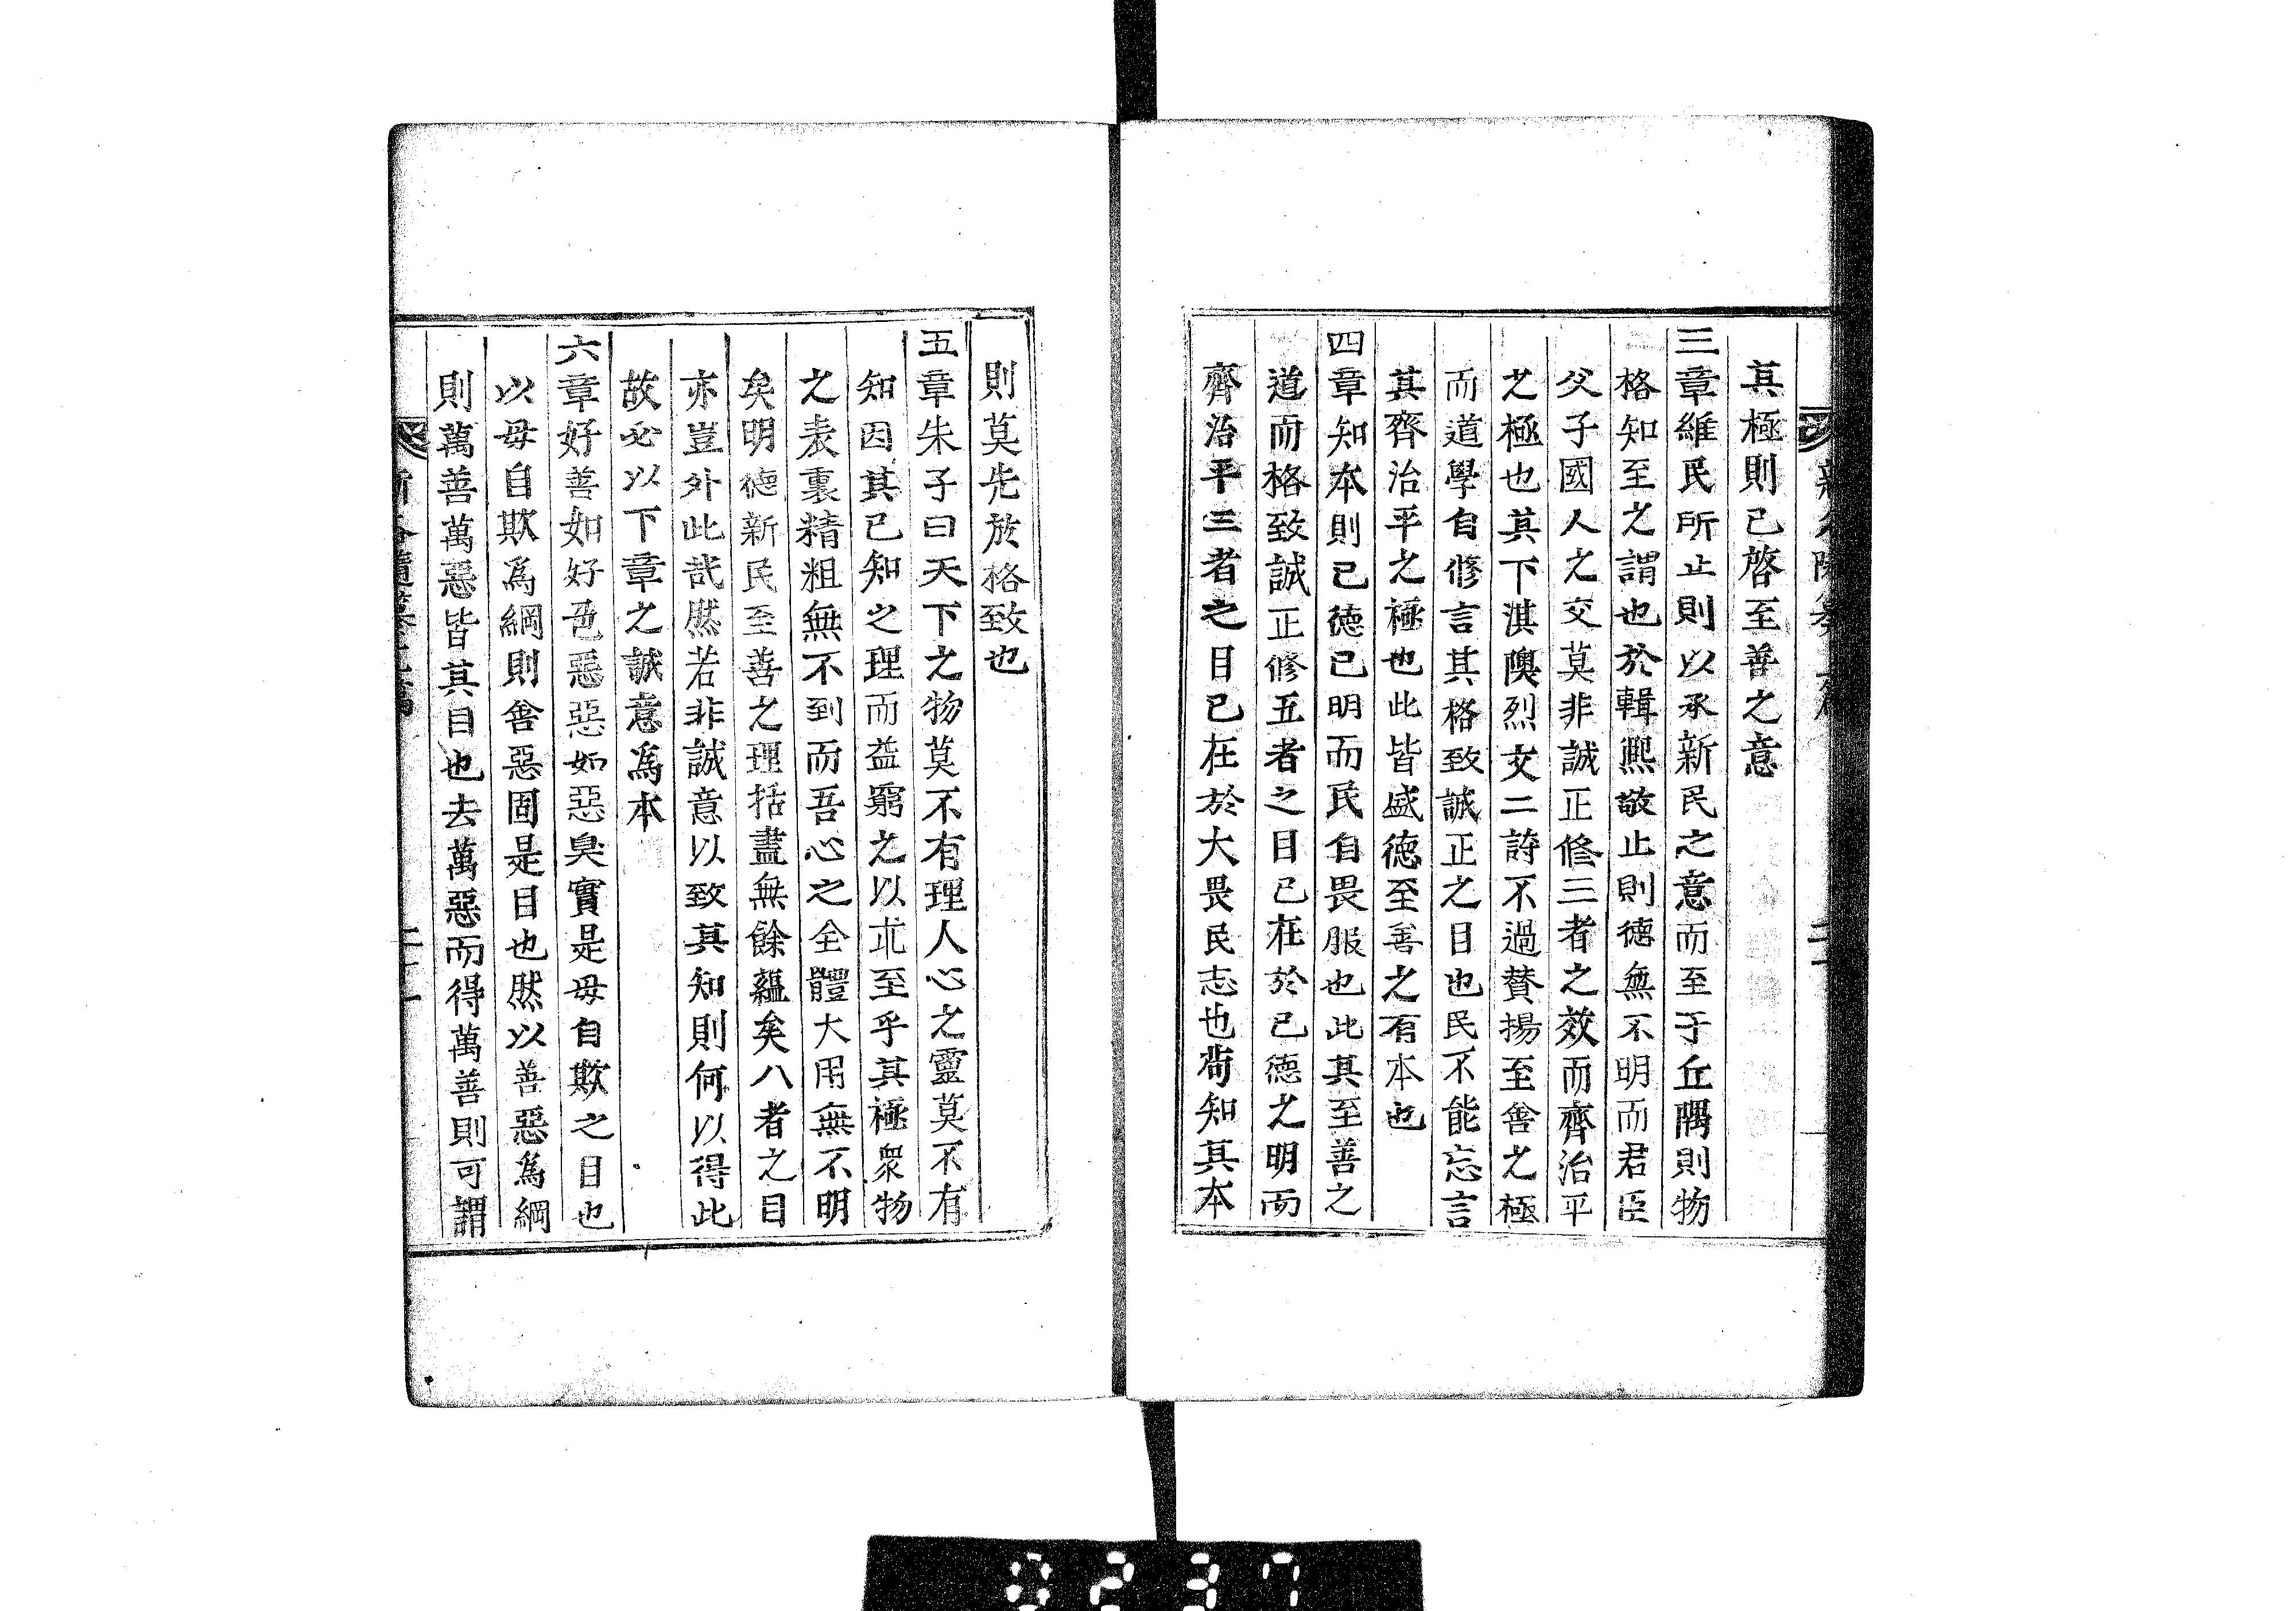 其極則已啓至善之意
三章維民所止則以承新民之意而至于丘隅則物
格知至之謂也於輯熈敬止則德無不明而君臣
父子國人之交莫非誠正修三者之效而齊治平
之極也其下淇隩烈文二詩不過賛揚至善之極
而道學自修言其格致誠正之目也民不能忘言
其齊治平之極也此皆盛德至善之有本也
四章知本則已德已明而民自畏服也此其至善之
道而格致誠正修五者之目已在於已德之明而
齊治平三者之目已在於大畏民志也苟知其本
則莫先於格致也
五章朱子曰天下之物莫不有理人心之靈莫不有
知因其已知之理而益窮之以求至乎其極衆物
之表裏精粗無不到而吾心之全體大用無不明
矣明德新民至善之理括盡無餘蘊矣八者之目
亦豈外此哉然若非誠意以致其知則何以得此
故必以下章之誠意爲本
六章好善如好色惡惡如惡臭實是毋自欺之目也
以毋自欺爲綱則善惡固是目也然以善惡爲綱
則萬善萬惡皆其目也去萬惡而得萬善則可謂
0237